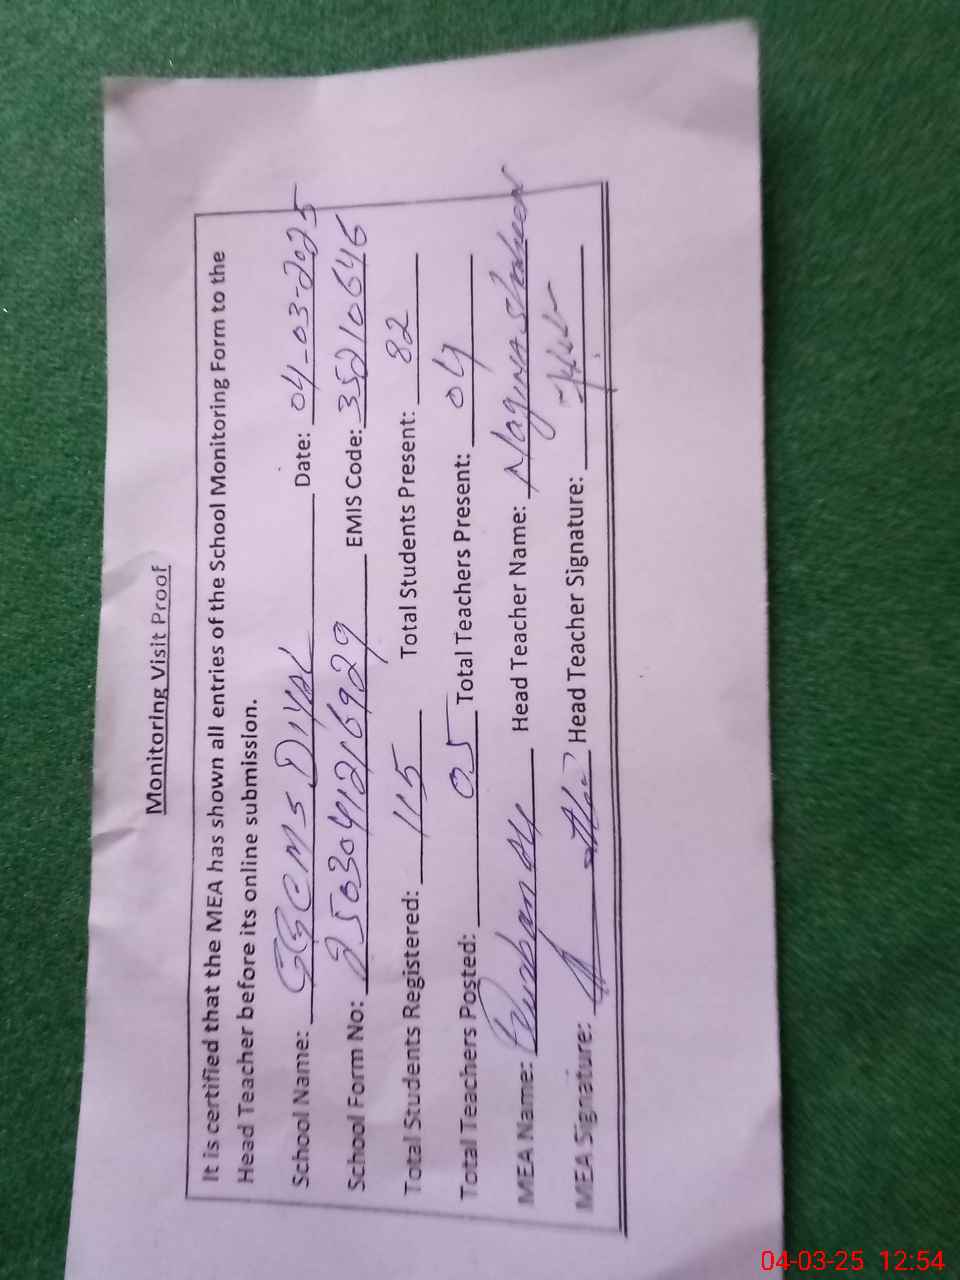 Monitoring Visit Proof
It is certified that the MEA has shown all entries of the School Monitoring Form to the
Head Teacher before its online submission.
School Name: GGCMS DIYAL Date: 04-03-2025
School Form No: 2503041216929 EMIS Code: 35210646
Total Students Registered: 115 Total Students Present: 82
Total Teachers Posted: 05 Total Teachers Present: 04
MEA Name: Head Teacher Name: Nagina Shaheen
MEA Signature: Head Teacher Signature:
04-03-25 12:54